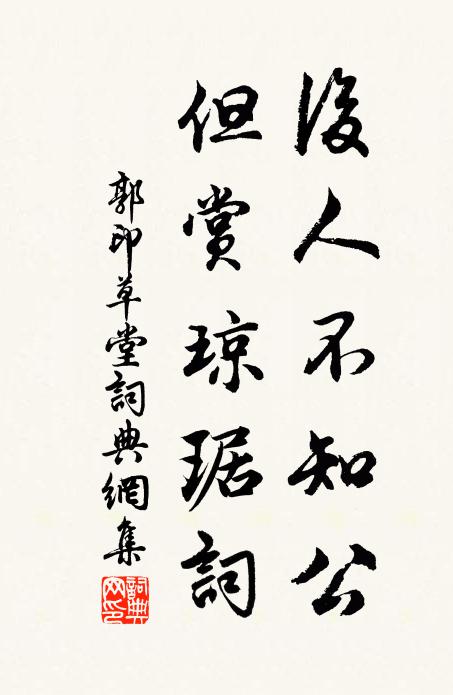 後人不知公
但賞琼琚詞
郭印草堂詞典網集
詞典
网印